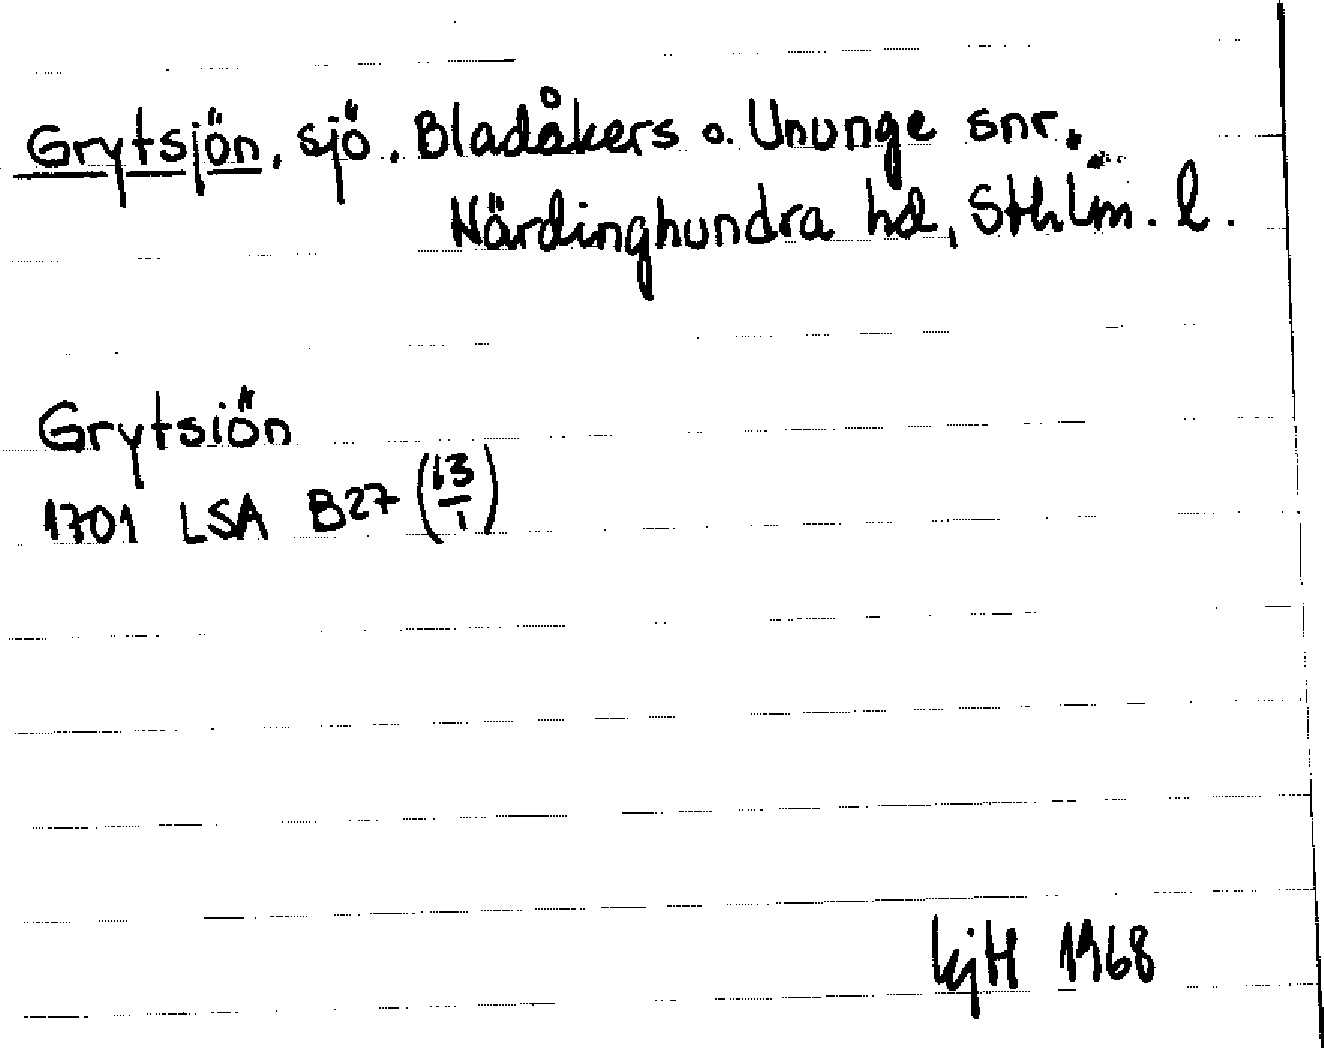 Grytsjön, sjö. Bladåkers o. Ununge snr.
Närdinghundra hd, Sthlm. l.
Grytsiön
1701 LSA B27 (13/1)
kjH 1968